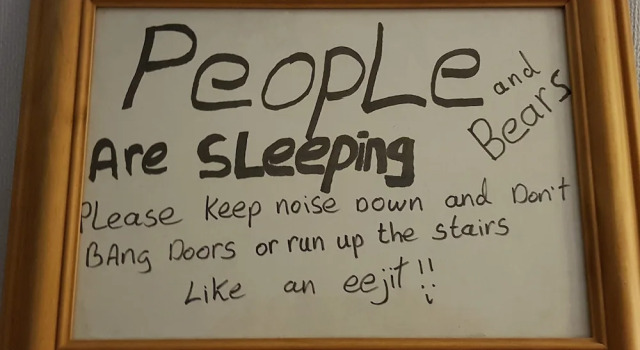 PeopLe and Bears
Are SLeeping
PLease keep noise Down and Don't
BAng Doors or run up the stairs
Like an eejit !!